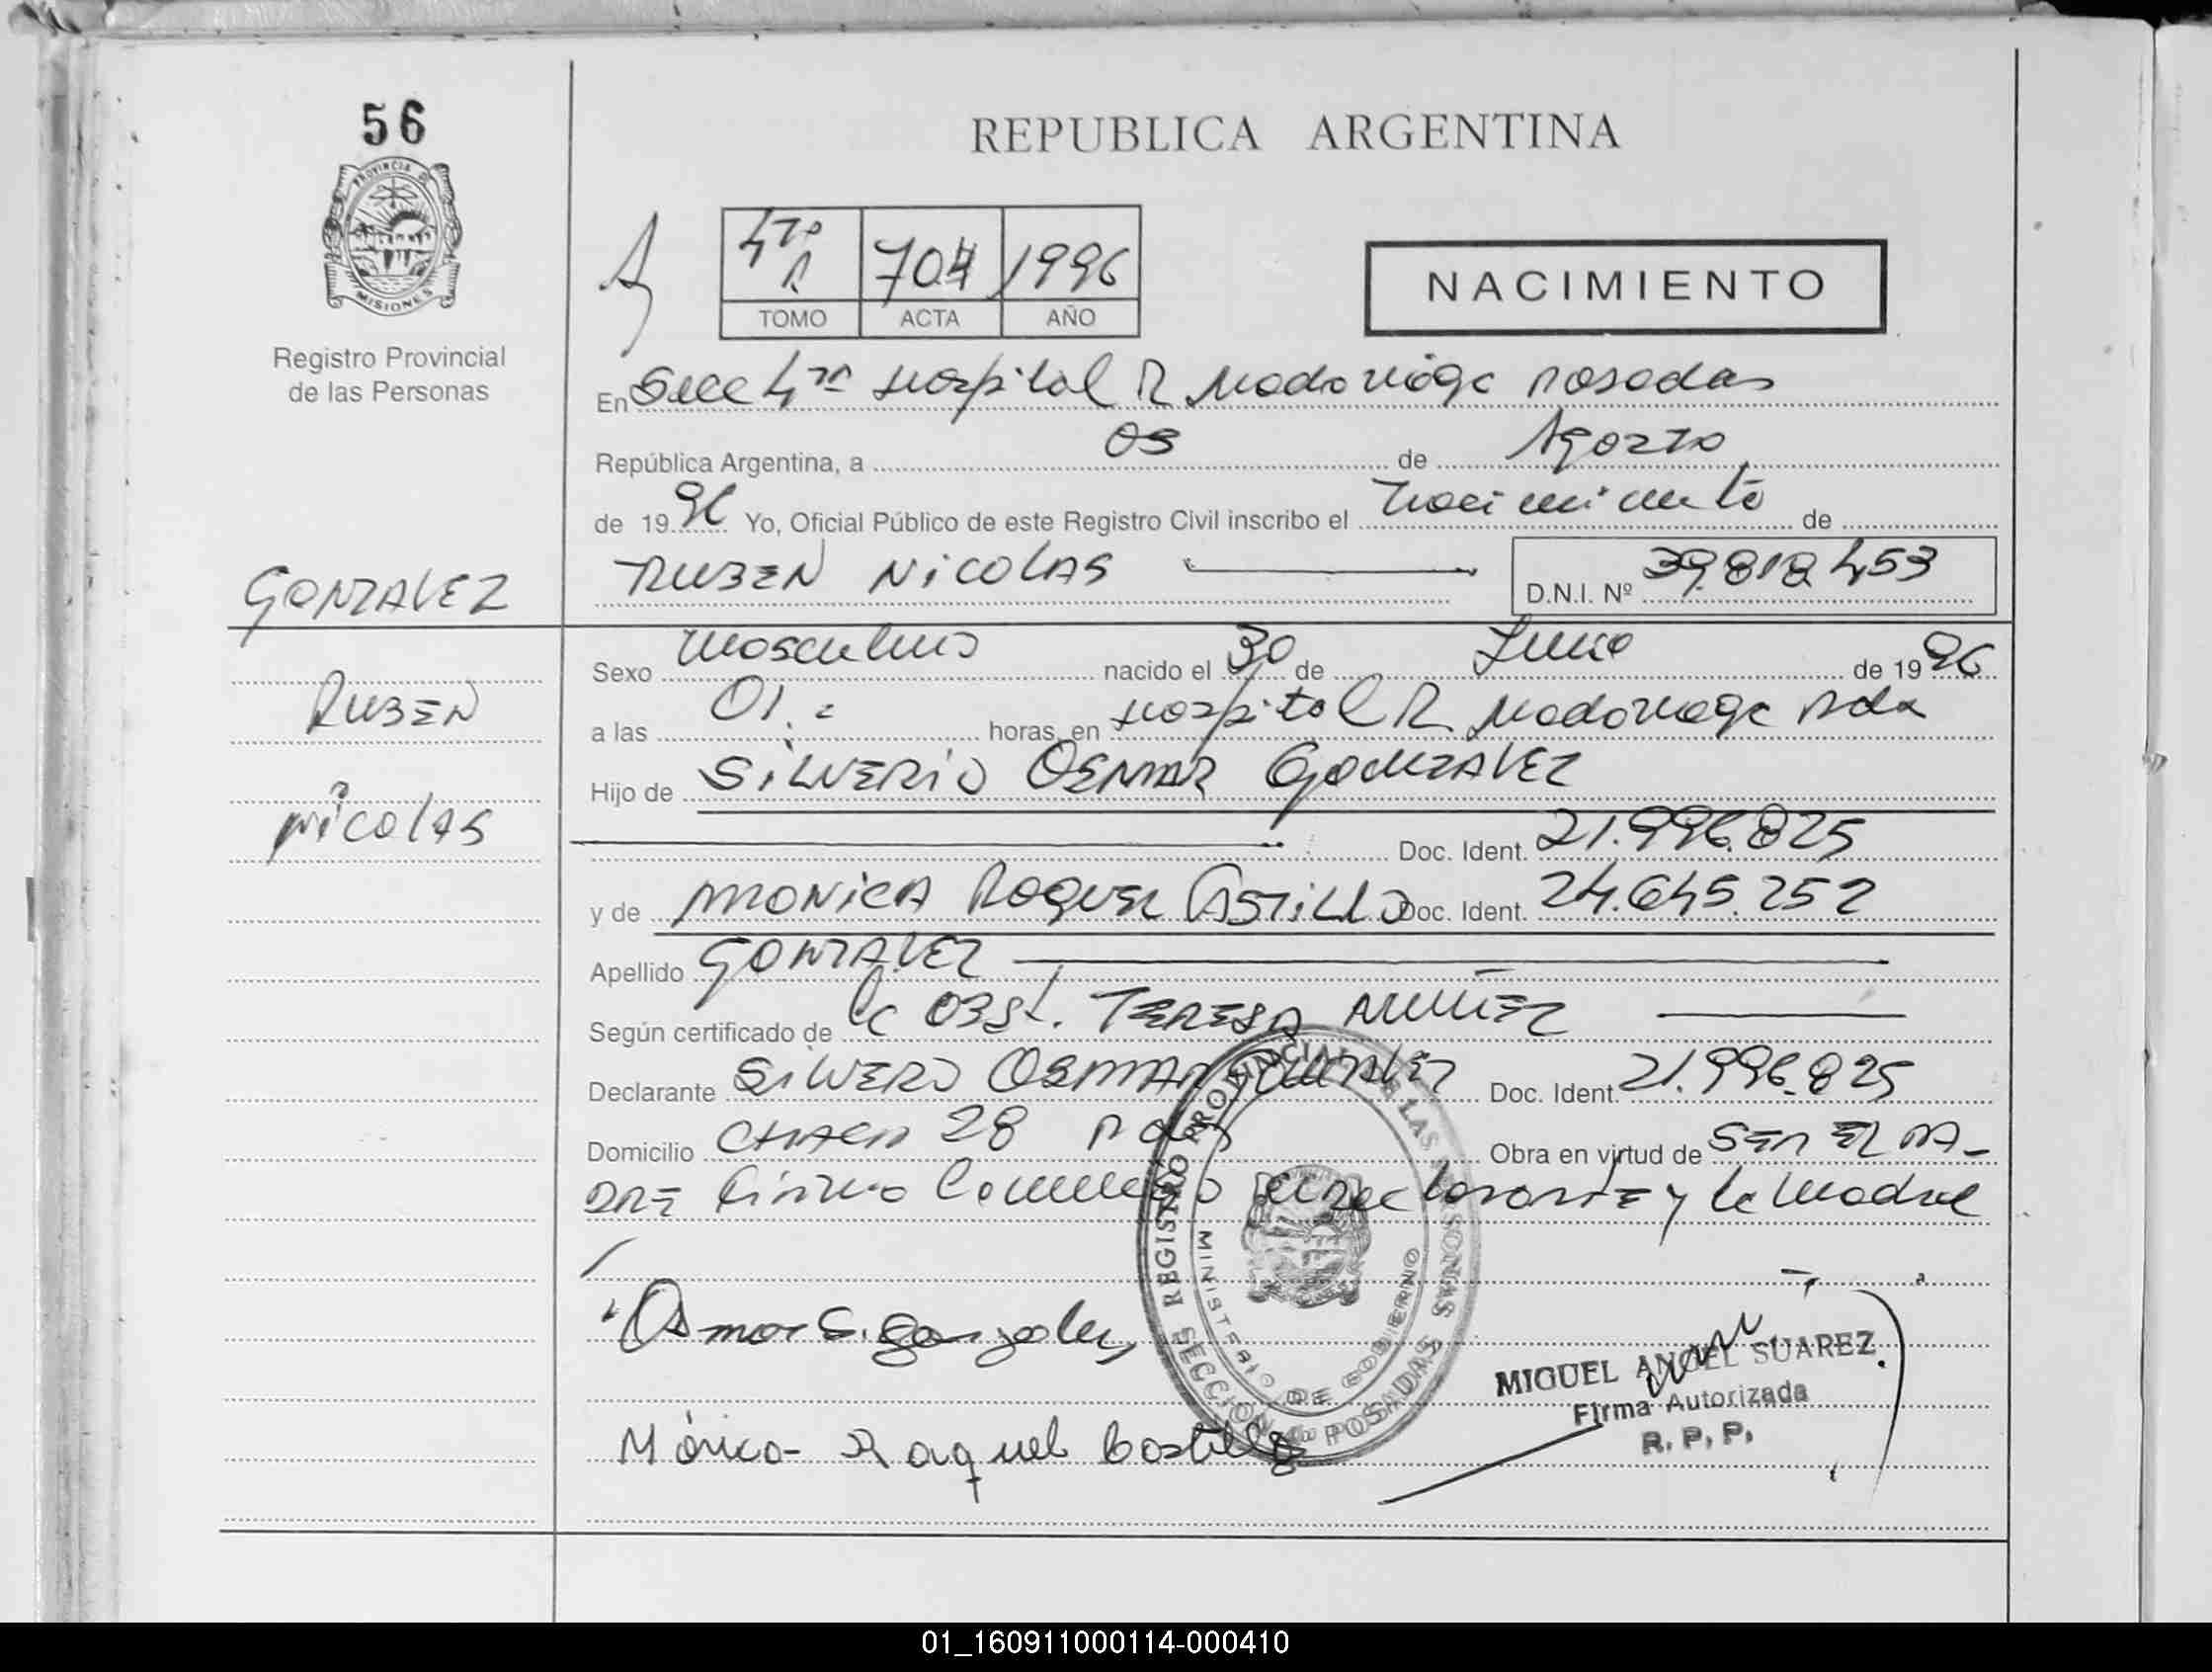 56
PROVINCIA DE
MISIONES
Registro Provincial
de las Personas
REPUBLICA ARGENTINA
4to 704 1996
TOMO ACTA AÑO
NACIMIENTO
En Secc 4ta Hospital R Madariaga Posadas
República Argentina, a 05 de Agosto
de 1996 Yo, Oficial Público de este Registro Civil inscribo el nacimiento de
RUBEN NICOLAS
D.N.I. Nº 39.818.453
GONZALEZ
RUBEN
NICOLAS
Sexo masculino nacido el 30 de Junio de 1996
a las 01. horas, en Hospital R Madariaga Pdas
Hijo de SILVERIO OSMAR GONZALEZ
Doc. Ident. 21.996.825
y de MONICA RAQUEL CASTILLO Doc. Ident. 24.645.252
Apellido GONZALEZ
Según certificado de la OBST. TERESA NUÑEZ
Declarante SILVERO OSMAR GONZALEZ Doc. Ident. 21.996.825
Domicilio CHACO 28 Pdas Obra en virtud de SER EL PA-
DRE firma el declarante y la madre
Osmar S. Gonzalez
Mónica Raquel Castillo
REGISTRO PROVINCIAL DE LAS PERSONAS
MINISTERIO DE GOBIERNO
SECCION 4a POSADAS
MIGUEL ANGEL SUAREZ
Firma Autorizada
R. P. P.
01_160911000114-000410